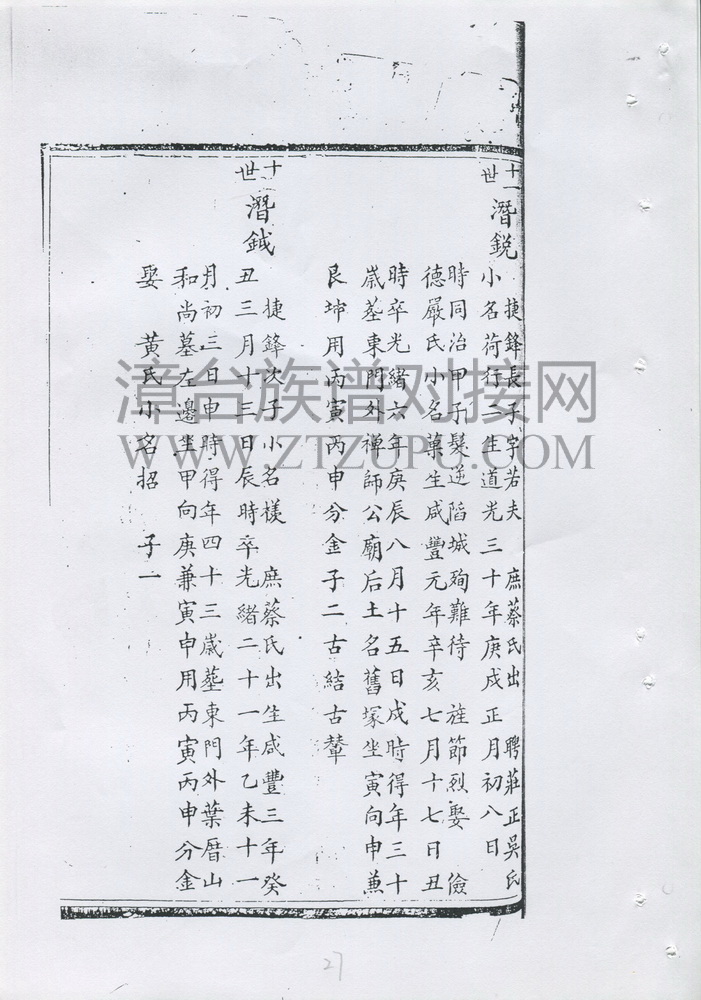 十一世
潛銳
捷鋒長子字若夫 庶蔡氏出 聘莊正吳氏
小名荷行二生道光三十年庚戌正月初八日
時同治甲子髮逆陷城殉難待 旌節烈娶 儉
德嚴氏小名菓生咸豐元年辛亥七月十七日丑
時卒光緒六年庚辰八月十五日戌時得年三十
歲塟東門外禪師公廟后土名舊塚坐寅向申兼
艮坤用丙寅丙申分金子二古結古輦
十世
潛鉞
捷鋒次子小名樣 庶蔡氏出生咸豐三年癸
丑三月十三日辰時卒光緒二十一年乙未十一
月初三日申時得年四十三歲塟東門外葉厝山
和尚墓左邊坐甲向庚兼寅申用丙寅丙申分金
娶 黃氏小名招 子一
漳台族谱对接网
WWW.ZTZUPU.COM
27